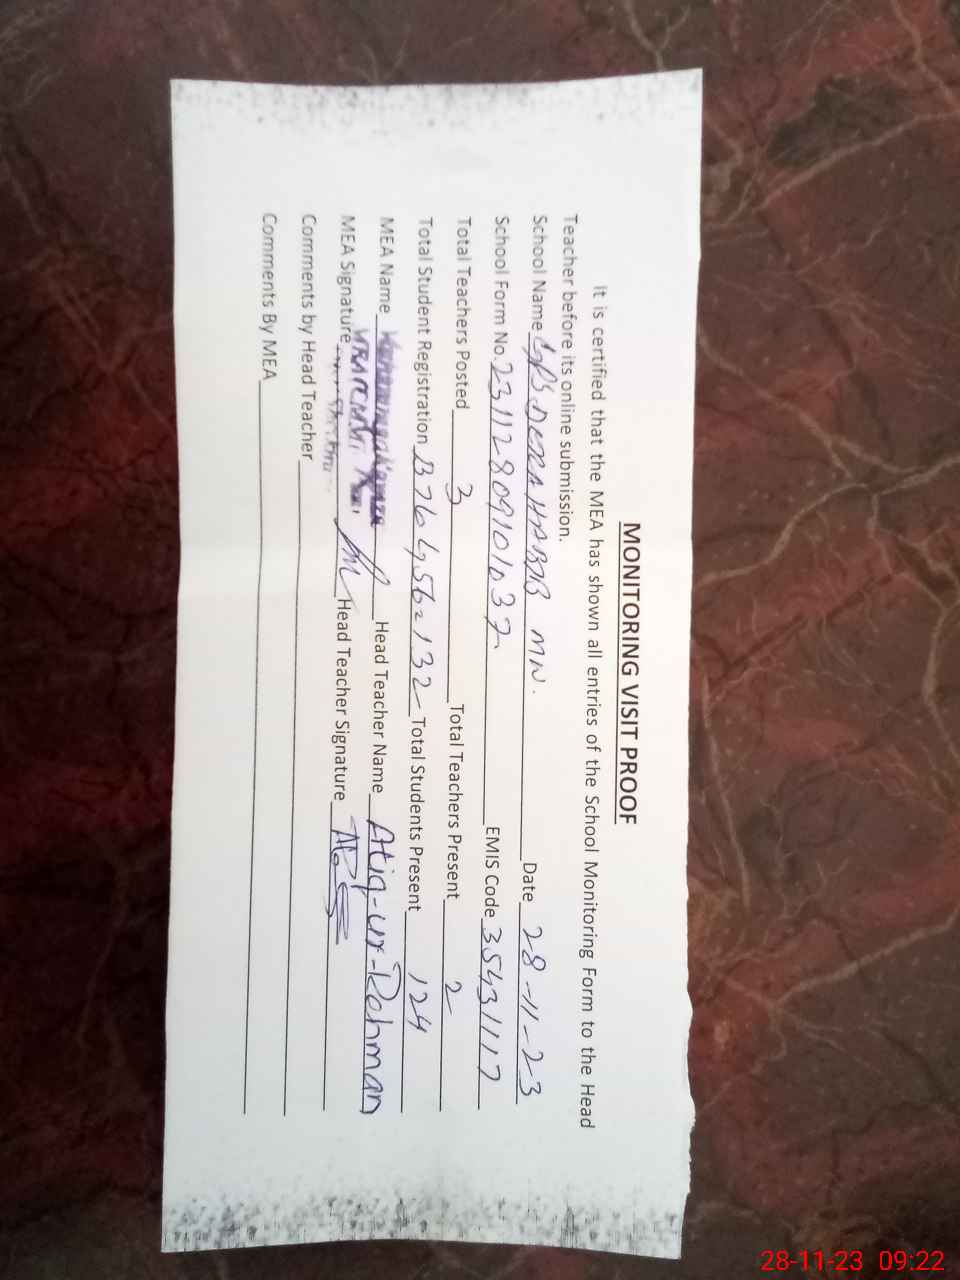 MONITORING VISIT PROOF
It is certified that the MEA has shown all entries of the School Monitoring Form to the Head
Teacher before its online submission.
School Name GPS DERA HABIB MW. Date 28-11-23
School Form No. 2311280910103 EMIS Code 35431117
Total Teachers Posted 3 Total Teachers Present 2
Total Student Registration B76 G56=132 Total Students Present 124
MEA Name Head Teacher Name Atiq-ur-Rehman
MEA Signature Head Teacher Signature
Comments by Head Teacher
Comments By MEA
28-11-23 09:22